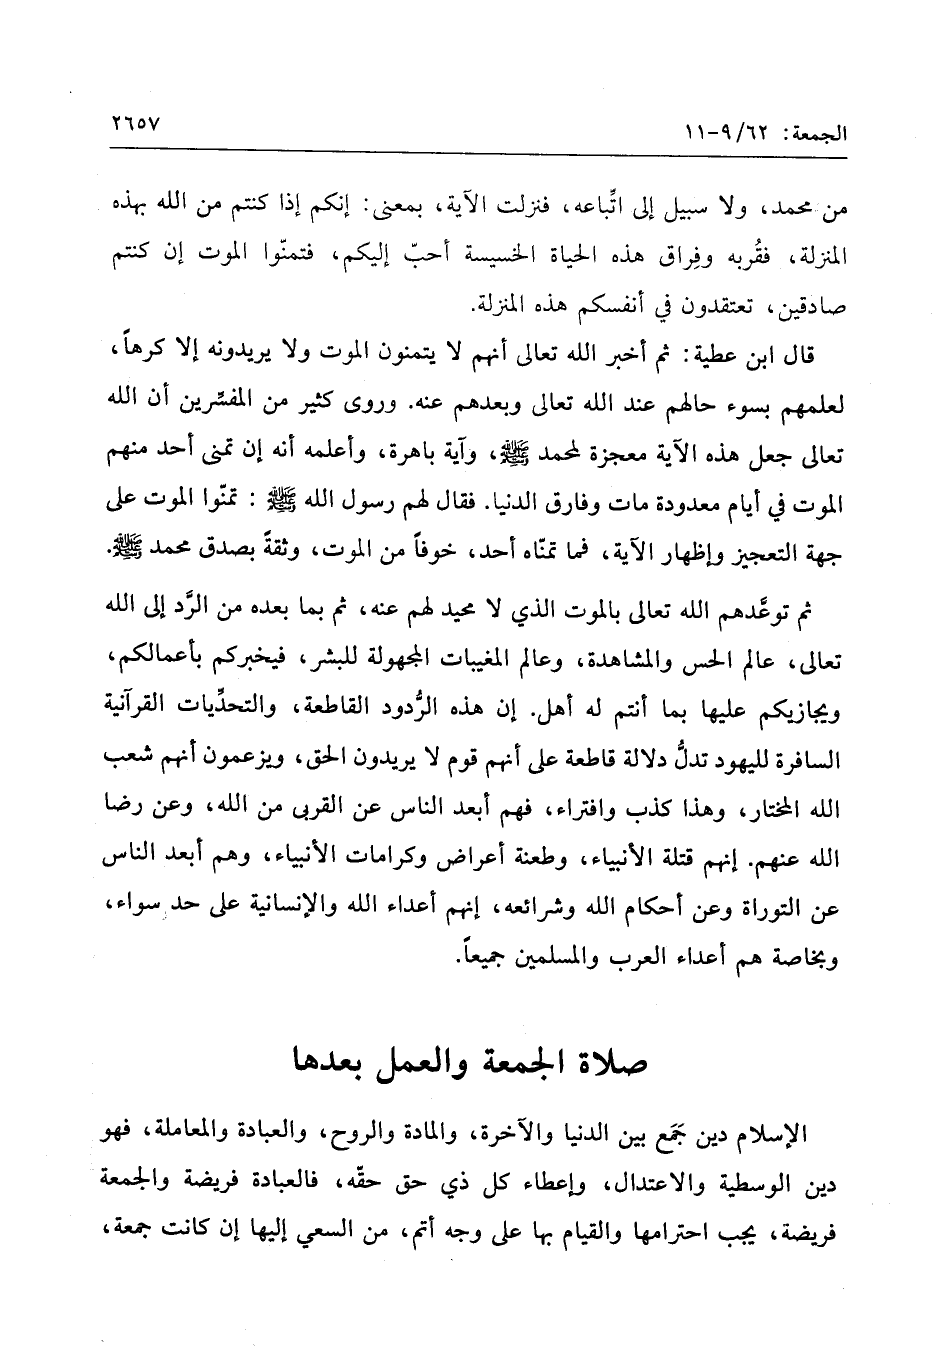 الجمعة: ٦٢/ ٩-١١
٢٦٥٧
من محمد، ولا سبيل إلى اتِّباعه، فنزلت الآية، بمعنى: إنكم إذا كنتم من الله بهذه
المنزلة، فقُربه وفِراق هذه الحياة الخسيسة أحبّ إليكم، فتمنّوا الموت إن كنتم
صادقين، تعتقدون في أنفسكم هذه المنزلة.
قال ابن عطية: ثم أخبر الله تعالى أنهم لا يتمنون الموت ولا يريدونه إلا كرهاً،
لعلمهم بسوء حالهم عند الله تعالى وبعدهم عنه. وروى كثير من المفسِّرين أن الله
تعالى جعل هذه الآية معجزة لمحمد ﷺ، وآية باهرة، وأعلمه أنه إن تمنى أحد منهم
الموت في أيام معدودة مات وفارق الدنيا. فقال لهم رسول الله ﷺ : تمنّوا الموت على
جهة التعجيز وإظهار الآية، فما تمنّاه أحد، خوفاً من الموت، وثقةً بصدق محمد ﷺ.
ثم توعَّدهم الله تعالى بالموت الذي لا محيد لهم عنه، ثم بما بعده من الرَّد إلى الله
تعالى، عالم الحس والمشاهدة، وعالم المغيبات المجهولة للبشر، فيخبركم بأعمالكم،
ويجازيكم عليها بما أنتم له أهل. إن هذه الرُّدود القاطعة، والتحدِّيات القرآنية
السافرة لليهود تدلُّ دلالة قاطعة على أنهم قوم لا يريدون الحق، ويزعمون أنهم شعب
الله المختار، وهذا كذب وافتراء، فهم أبعد الناس عن القربى من الله، وعن رضا
الله عنهم. إنهم قتلة الأنبياء، وطعنة أعراض وكرامات الأنبياء، وهم أبعد الناس
عن التوراة وعن أحكام الله وشرائعه، إنهم أعداء الله والإنسانية على حد سواء،
وبخاصة هم أعداء العرب والمسلمين جميعاً.
صلاة الجمعة والعمل بعدها
الإسلام دين جَمَع بين الدنيا والآخرة، والمادة والروح، والعبادة والمعاملة، فهو
دين الوسطية والاعتدال، وإعطاء كل ذي حق حقّه، فالعبادة فريضة والجمعة
فريضة، يجب احترامها والقيام بها على وجه أتم، من السعي إليها إن كانت جمعة،